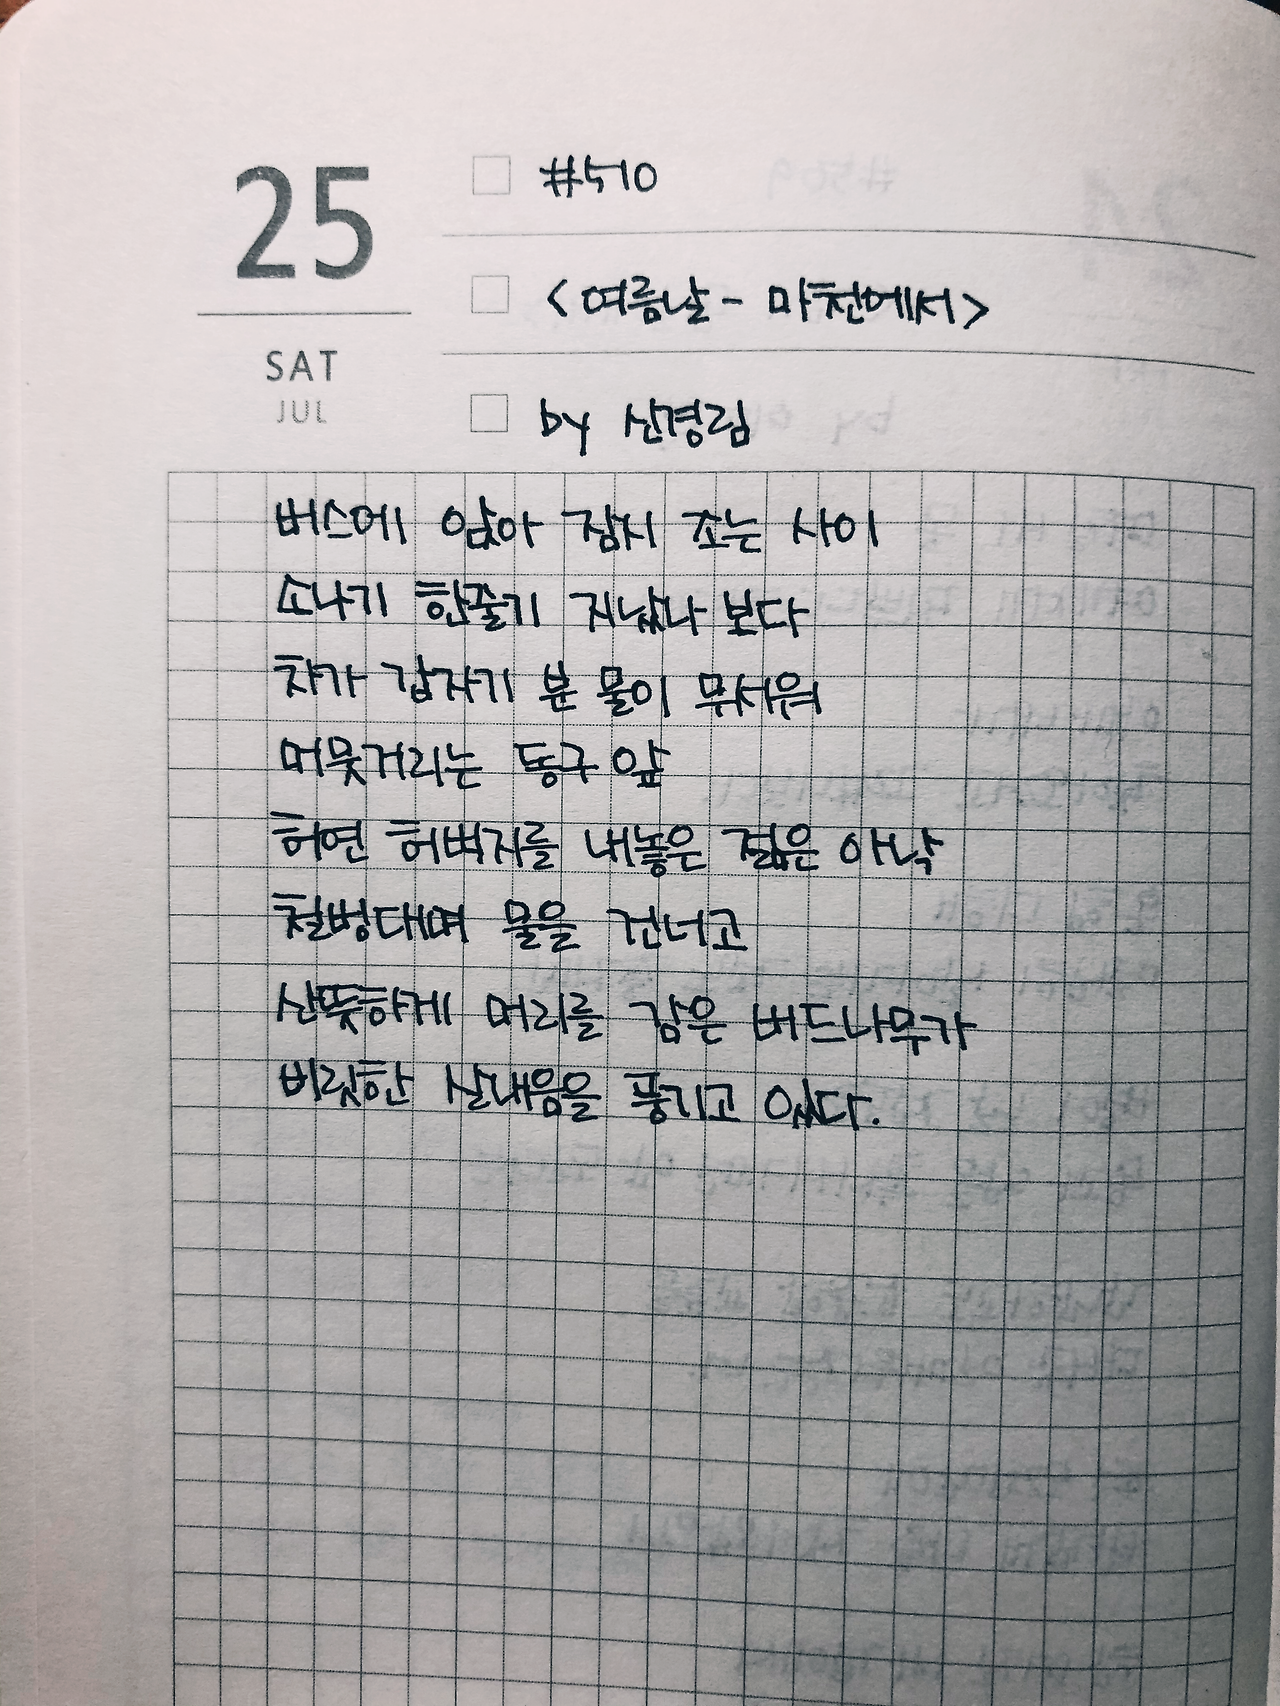 25
SAT
JUL
#510
<여름날 - 마천에서>
by 신경림
버스에 앉아 잠시 조는 사이
소나기 한줄기 지났나 보다
차가 갑자기 분 물이 무서워
머뭇거리는 동구 앞
허연 허벅지를 내놓은 젊은 아낙
철벙대며 물을 건너고
산뜻하게 머리를 감은 버드나무가
비릿한 살내음을 풍기고 있다.